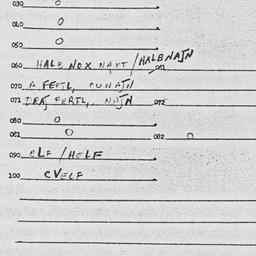 030 0
040 0
050 0
060 HALB NOX NAXT / HALBNAJN 061
070 A FERTL,
071 DRAJ FERTL, NAJN 072
080 0
081 0 082 0
090 ELF / HELF
100 CVELF